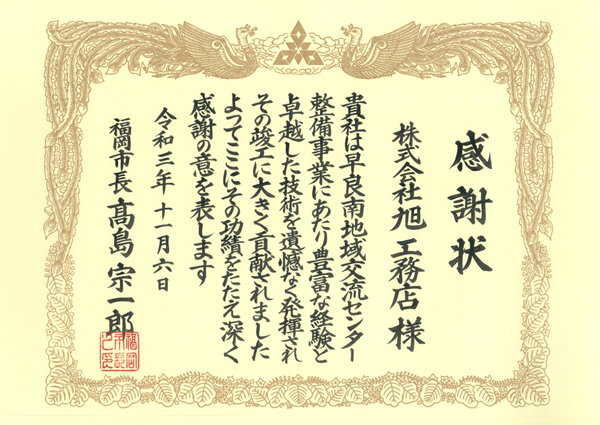 感謝状
株式会社旭工務店様
貴社は早良南地域交流センター
整備事業にあたり豊富な経験と
卓越した技術を遺憾なく発揮され
その竣工に大きく貢献されました
よってここにその功績をたたえ深く
感謝の意を表します
令和三年十一月六日
福岡市長髙島宗一郎
福岡市長之印